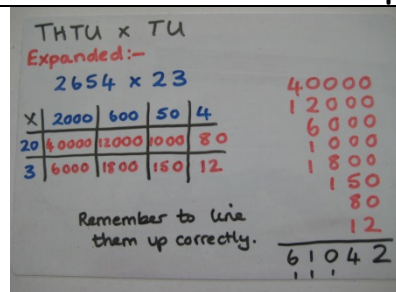 THTU x TU
Expanded:-
2654 x 23
x 2000 600 50 4
20 40000 12000 1000 80
3 6000 1800 150 12
Remember to line
them up correctly.
40000
12000
6000
1000
1800
150
80
12
61042
1 1 1